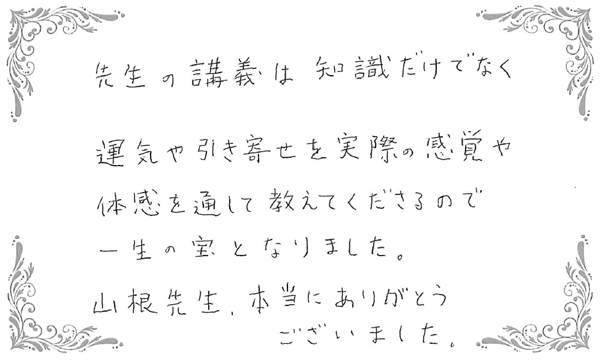 先生の講義は知識だけでなく
運気や引き寄せを実際の感覚や
体感を通して教えてくださるので
一生の宝となりました。
山根先生、本当にありがとう
ございました。